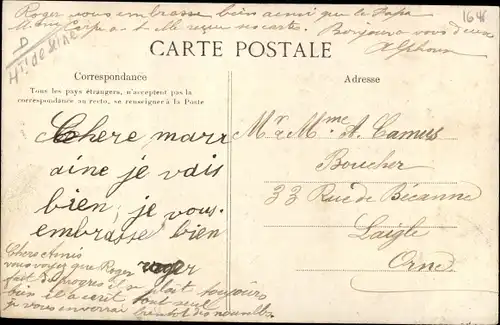 Roger vous embrasse bien ainsi que le Papa
Bonjour a vous deux
Alphons
D
Hts de Seine
CARTE POSTALE
Correspondance
Tous les pays étrangers, n'acceptent pas la
correspondance au recto, se renseigner à la Poste
Chere marr
aine je vais
bien, je vous
embrasse bien
roger
Chers Amis
vous voyez que Roger
fait du progrès il se plait toujours
bien il a écrit tout seul
je vous enverrai bientot des nouvelles
Adresse
Mr & Mme A. Camus
Boucher
33 Rue de Bécanne
Laigle
Orne